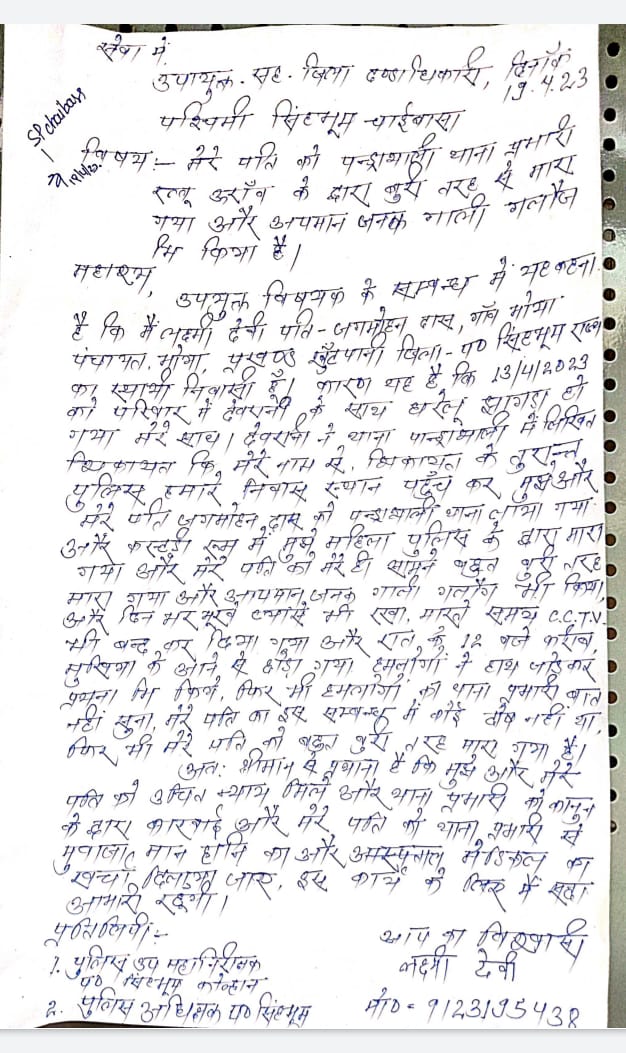 सेवा में
उपायुक्त. सह. जिला दण्डाधिकारी, दिनांक
19.4.23
पश्चिमी सिंहभूम चाईबासा
SP chaibasa
विषय:- मेरे पति को पन्ड्राशाली थाना प्रभारी
के द्वारा बुरी तरह से मारा
गया और अपमान जनक गाली गलौज
भि किया है।
महाशय,
उपयुक्त विषयक के सम्बन्ध में यह कहना
है कि मैं लक्ष्मी देवी पति - जगमोहन दास, गाँव भोया
पंचायत. भोया, प्रखण्ड खुँटपानी जिला - प० सिंहभूम राज्य
का स्थायी निवासी हूँ। कारण यह है कि 13/4/2023
को परिवार में देवरानी के साथ घरेलू झागड़ा हो
गया मेरे साथ। देवरानी ने थाना पान्ड्राशाली में लिखित
शिकायत कि, मेरे नाम से. शिकायत के तुरान्त
पुलिस हमारे निवास स्थान पहुँच कर मुझे और
मेरे पति जगमोहन दास को पन्ड्राशाली थाना लाया गया
और कस्टडी रूम में मुझे महिला पुलिस के द्वारा मारा
गया और मेरे पति को मेरे ही सामने बहुत बुरी तरह
मारा गया और अपमान जनक गाली गलौज भी किया,
और दिन भर भूखे प्यासे भी रखा, मारते समय C.C.T.V.
भी बन्द कर दिया गया और रात के 12 बजे करीब,
मुखिया के आने से छोड़ा गया हमलोगों ने हाथ जोड़कर
प्रथना भि किये, फिर भी हमलोगों का थाना प्रभारी बात
नहीं सुना, मेरे पति का इस सम्बन्ध में कोई दोष नहीं था,
फिर भी मेरे पति को बहुत बुरी तरह मारा गया है।
अत: श्रीमान से प्रथाना है कि मुझे और मेरे
पति को उचित न्याय मिले और थाना प्रभारी को कानुन
के द्वारा कारवाई और मेरे पति को थाना प्रभारी से
मुवाजा, मान हानि का और अस्पताल मेडिकल का
खर्चा दिलाया जाए, इस कार्य के लिए मैं सदा
आभारी रहूगी।
प्रतिलिपी:-
आप का विश्वासी
लक्ष्मी देवी
1. पुलिस उप महानिरीक्षक
प० सिंहभूम कोल्हान
2. पुलिस अधिक्षक प० सिंहभूम
मो० = 9123195438